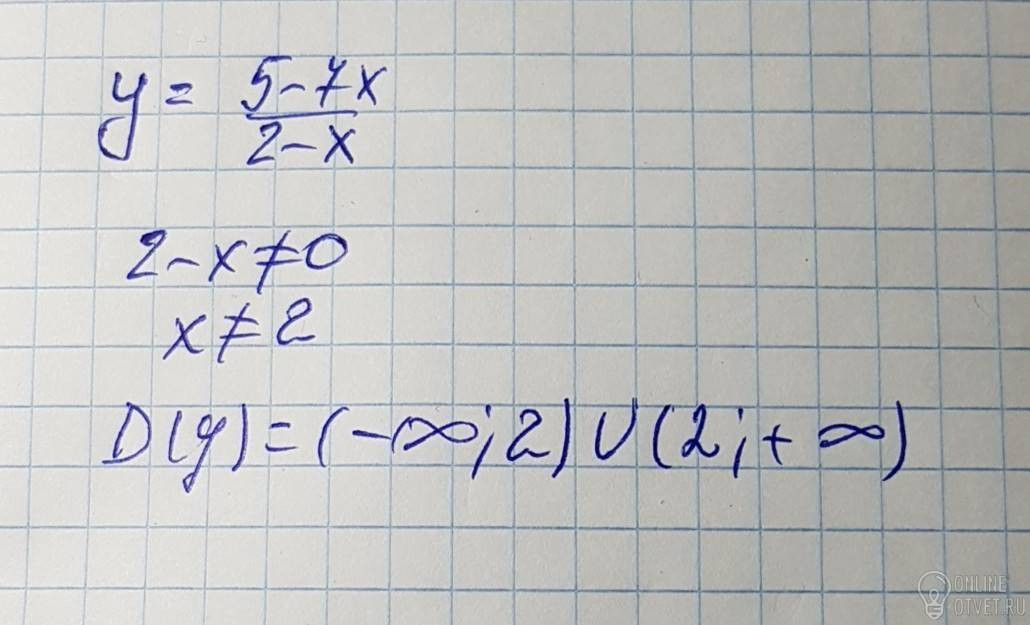 y = (5-7x)/(2-x)
2-x≠0
x≠2
D(y)=(-∞;2)∪(2;+∞)
ONLINE
OTVET.RU